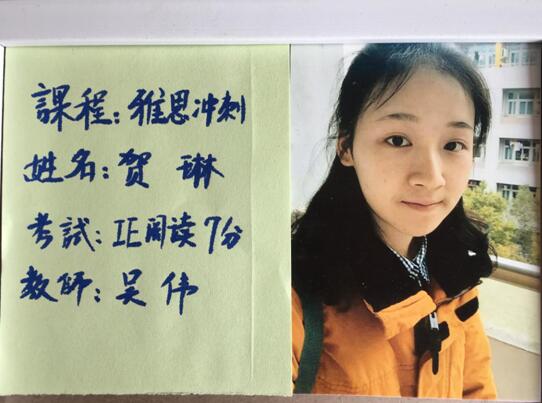 課程：雅思冲刺
姓名：贺琳
考試：IE阅读7分
教师：吴伟